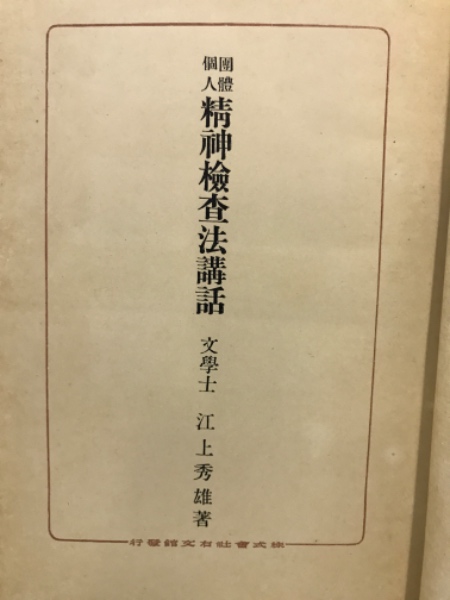 團體
個人
精神檢査法講話
文學士 江上秀雄著
株式會社右文館發行